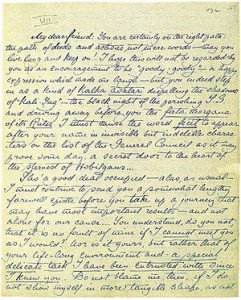 My dear friend: You are certainly on the right path;
the path of deeds and actions, not mere words — may you
live long and keep on! I hope this will not be regarded by
you as an encouragement to be "goody goody" — a happy
expression which made me laugh — but you indeed step
in as a kind of Kalka Avatar dispelling the shadows
of "Kali-yug" — the black night of the perishing T.S.
and driving away before you the fata morgana
of its Rules. I must cause the word to appear
after your name in invisible but indelible charac-
ters on the list of the General Council as it may
prove some day a secret door to the heart of
the sternest of
Tho' a good deal occupied — alas, as usual —
I must contrive to send you a somewhat lengthy
farewell epistle before you take up a journey that
may have most important results — and not
alone for our cause. You understand, do you not,
that it is no fault of mine if I cannot meet you
as I would? Nor is it yours, but rather that of
your life-long environment and a special
delicate task I have been entrusted with since
I knew you. Do not blame me then, if I do
not show myself in more tangible shape, as not